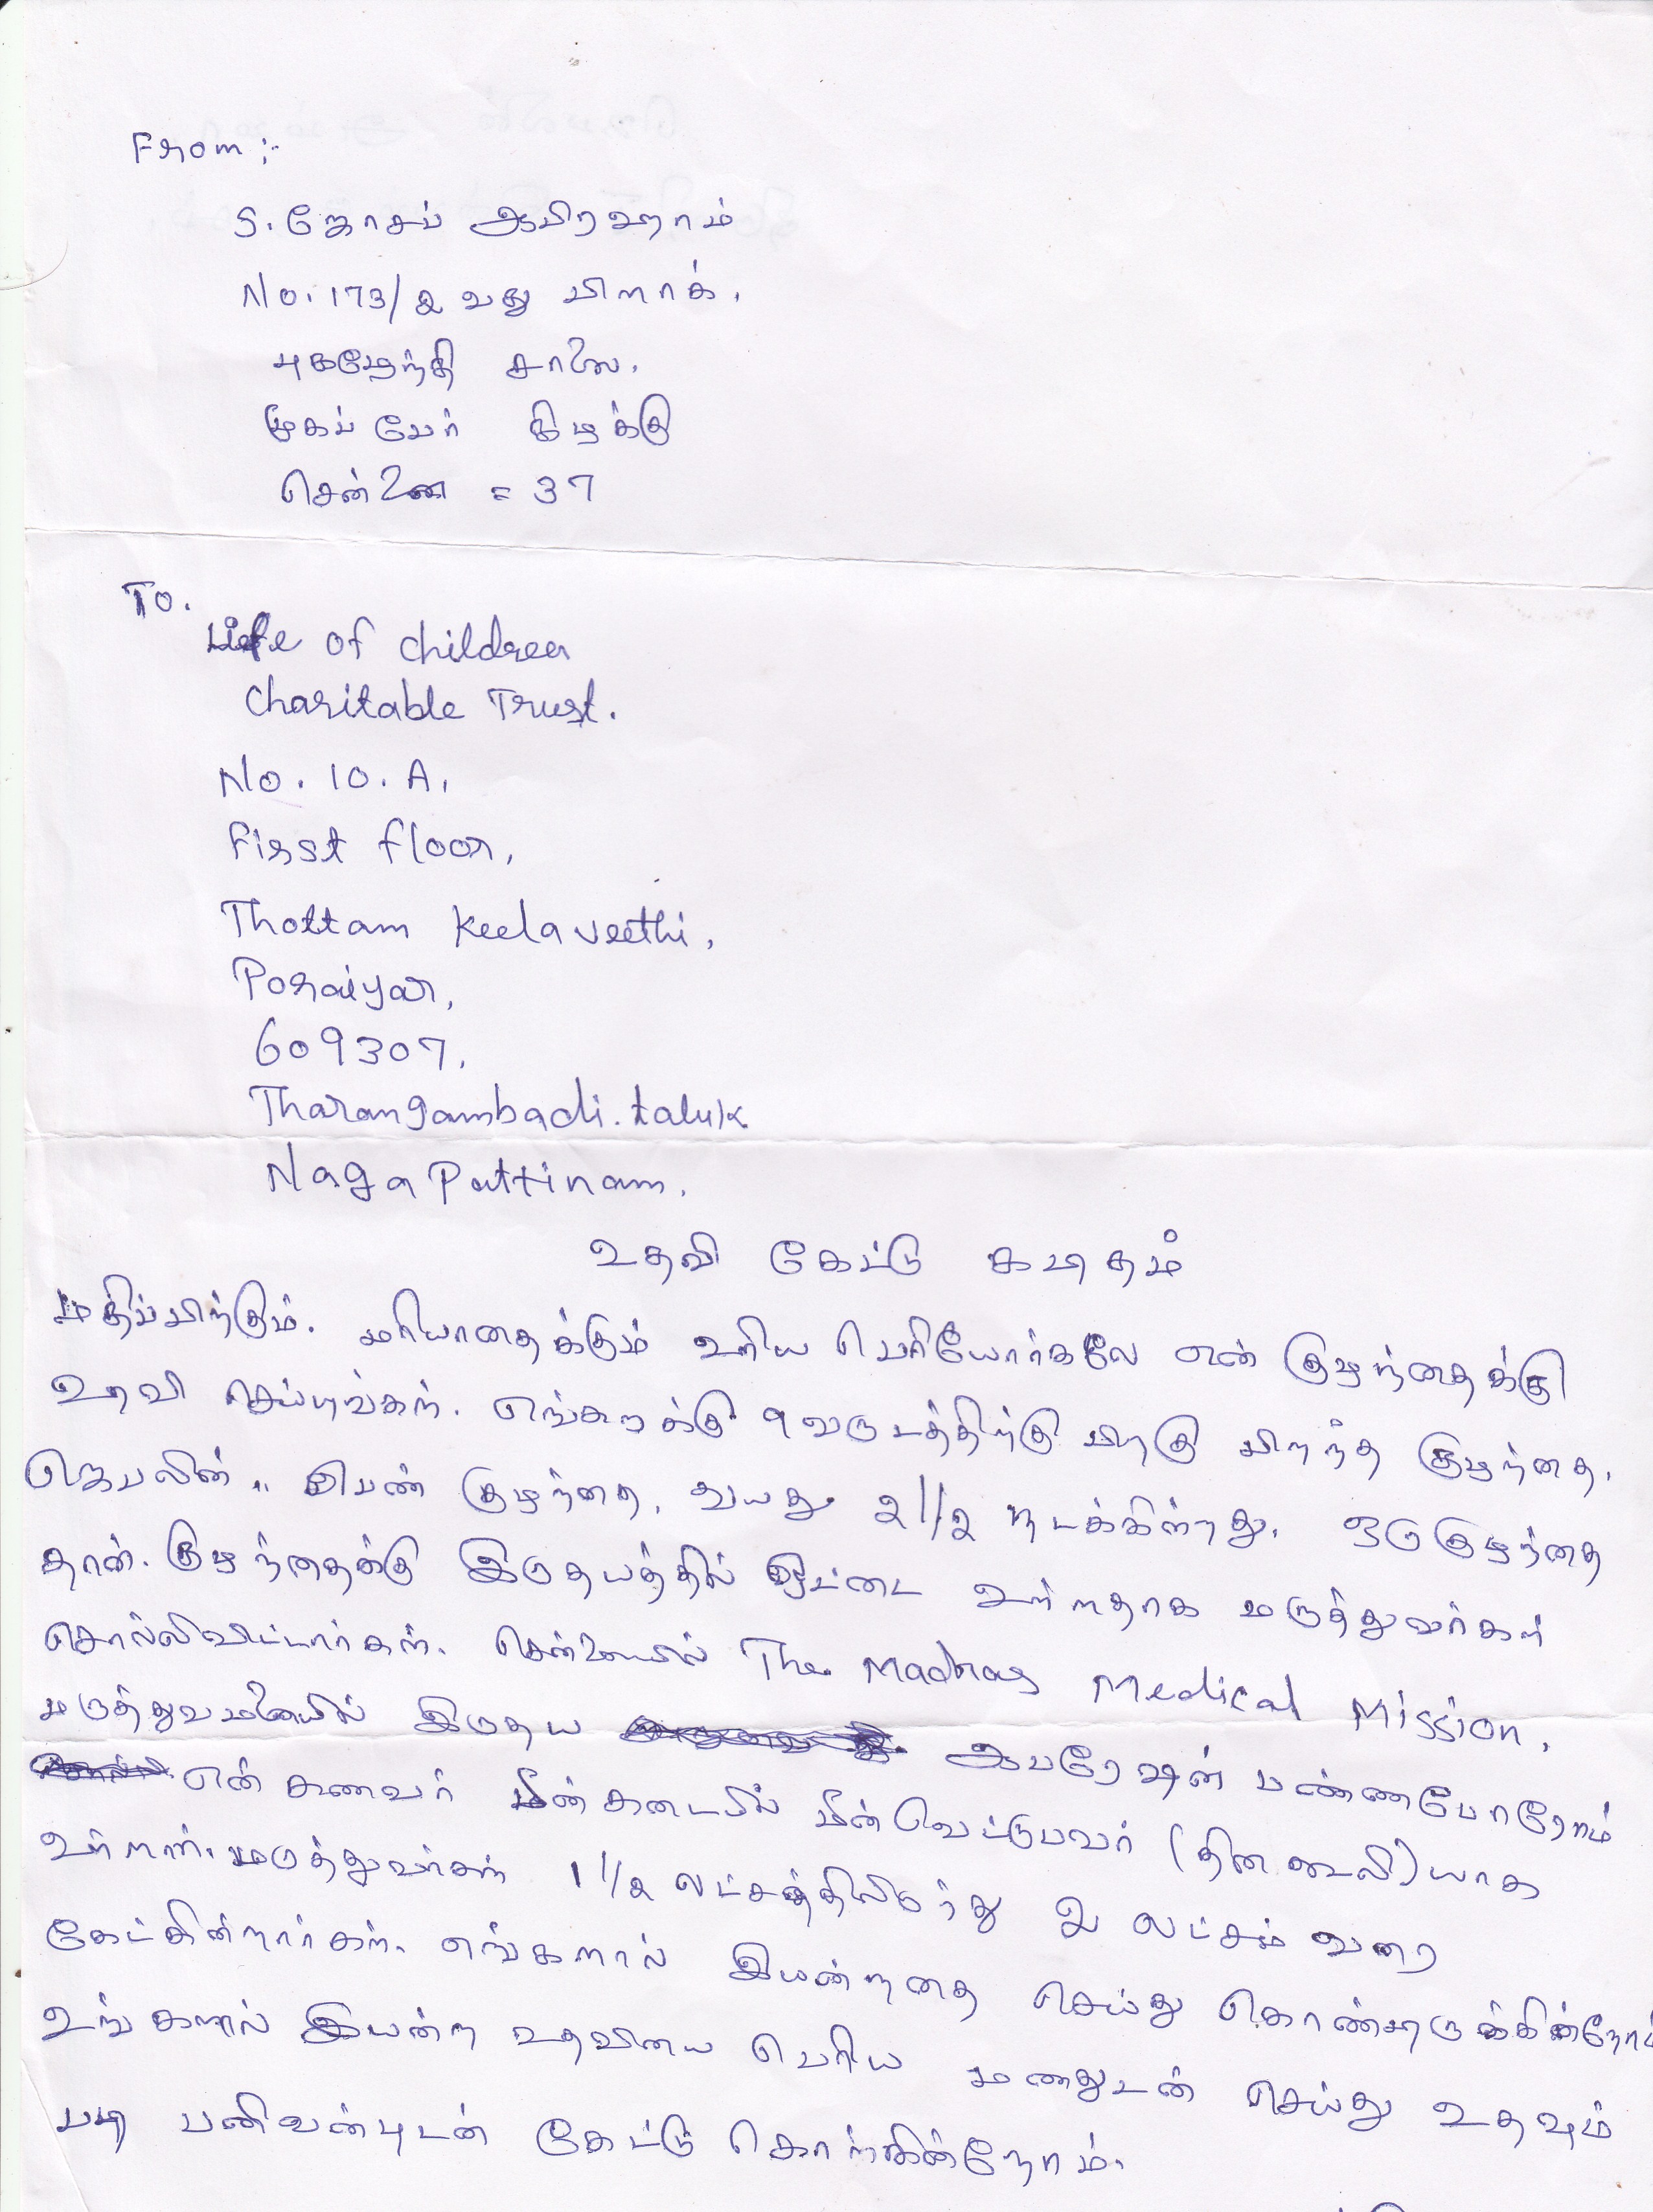 From :-
S. ஜோசப் ஆபிரஹாம்
No. 173/2 வது பிளாக்.
புகழேந்தி சாலை.
முகப்பேர் கிழக்கு
சென்னை = 37
To.
Life of children
Charitable Trust.
No. 10. A,
First floor,
Thottam Keelaveethi,
Poraiyar,
609307.
Tharangambadi. taluk
Nagapattinam.
உதவி கேட்டு கடிதம்
மதிப்பிற்கும். மரியாதைக்கும் உரிய பெரியோர்கலே என் குழந்தைக்கு
உதவி செய்யுங்கள். எங்களுக்கு 9 வருடத்திற்கு பிறகு பிறந்த குழந்தை.
ஜெபலின் .. பெண் குழந்தை. வயது 2 1/2 நடக்கின்றது. ஒரு குழந்தை
தான். குழந்தைக்கு இருதயத்தில் ஓட்டை உள்ளதாக மருத்துவர்கள்
சொல்லிவிட்டார்கள். சென்னையில் The Madras Medical Mission.
மருத்துவமனையில் இருதய ஆபரேஷன் பண்ணபோறோம்
என் கணவர் மீன்கடையில் மீன் வெட்டுபவர் (தின கூலி)யாக
உள்ளார். மருத்துவர்கள் 1 1/2 லட்சத்திலிருந்து 2 லட்சம் வரை
கேட்கின்றார்கள். எங்களால் இயன்றதை செய்து கொண்டிருக்கின்றோம்
உங்களால் இயன்ற உதவியை பெரிய மனதுடன் செய்து உதவும்
படி பனிவன்புடன் கேட்டு கொள்கின்றோம்.